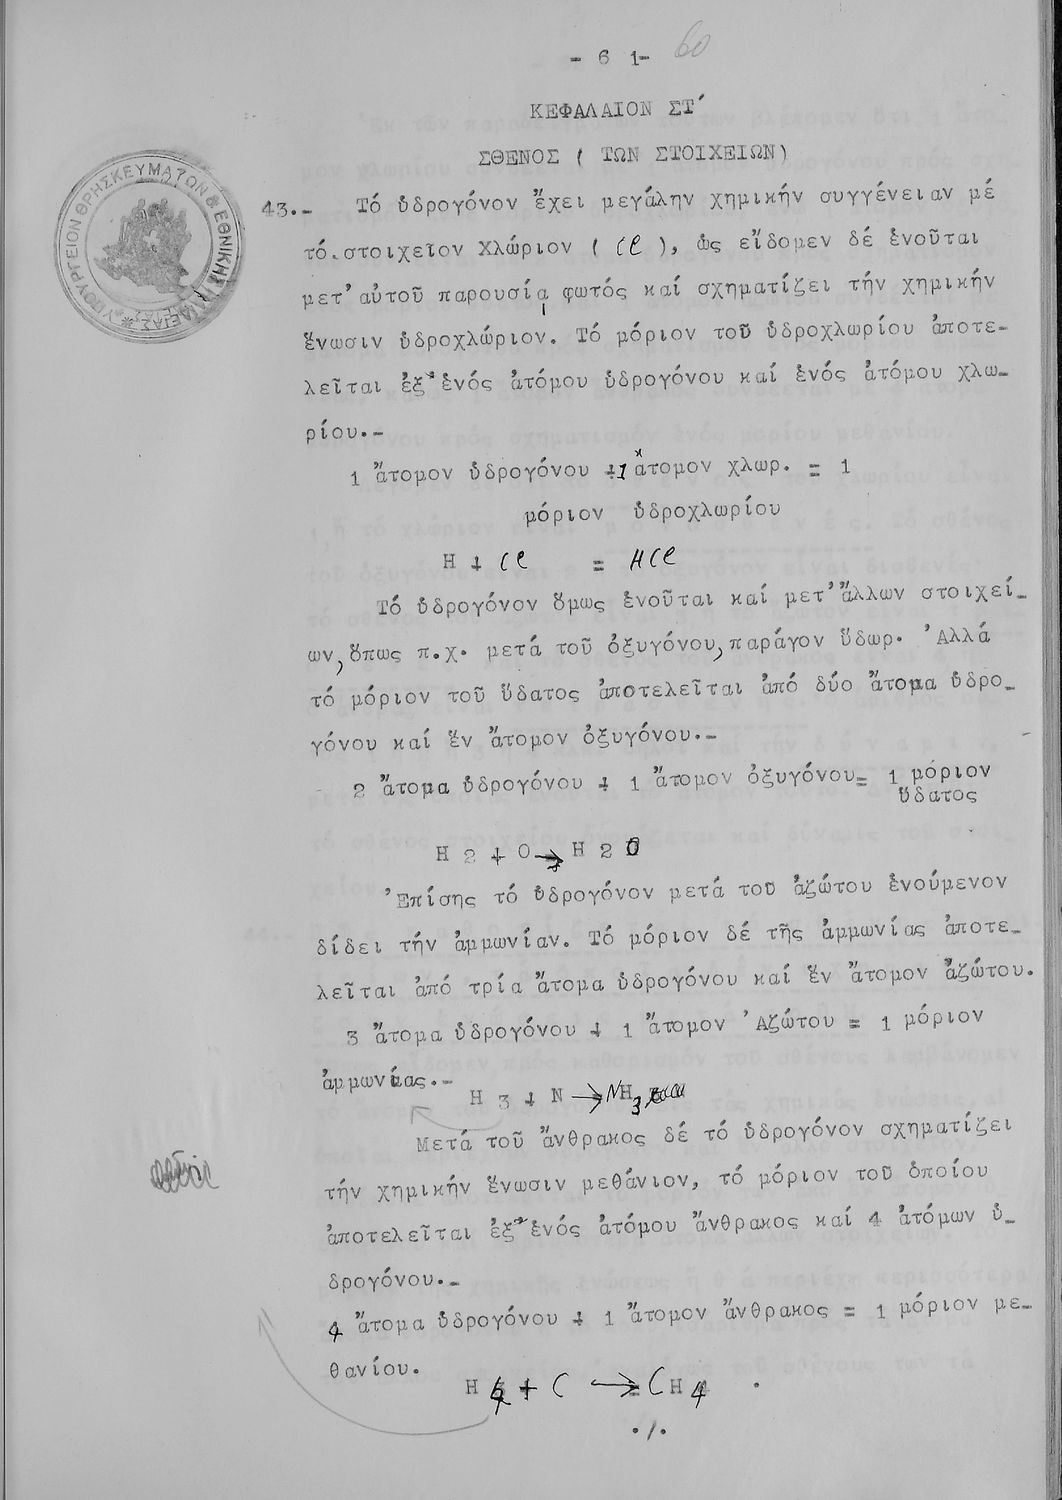 - 6 1-
60
ΚΕΦΑΛΑΙΟΝ ΣΤ΄
ΣΘΕΝΟΣ ( ΤΩΝ ΣΤΟΙΧΕΙΩΝ)
ΥΠΟΥΡΓΕΙΟΝ ΘΡΗΣΚΕΥΜΑΤΩΝ & ΕΘΝΙΚΗΣ ΠΑΙΔΕΙΑΣ
43.- Τό ὑδρογόνον ἔχει μεγάλην χημικήν συγγένειαν μέ
τό στοιχεῖον Χλώριον ( Cl ), ὡς εἴδομεν δέ ἑνοῦται
μετ' αὐτοῦ παρουσίᾳ φωτός καί σχηματίζει τήν χημικήν
ἕνωσιν ὑδροχλώριον. Τό μόριον τοῦ ὑδροχλωρίου ἀποτε-
λεῖται ἐξ ἑνός ἀτόμου ὑδρογόνου καί ἑνός ἀτόμου χλω-
ρίου.-
1 ἄτομον ὑδρογόνου +1 ἄτομον χλωρ. = 1
μόριον ὑδροχλωρίου
H + Cl = HCl
Τό ὑδρογόνον ὅμως ἑνοῦται καί μετ' ἄλλων στοιχεί-
ων, ὅπως π.χ. μετά τοῦ ὀξυγόνου, παράγον ὕδωρ. Ἀλλά
τό μόριον τοῦ ὕδατος ἀποτελεῖται ἀπό δύο ἄτομα ὑδρο-
γόνου καί ἕν ἄτομον ὀξυγόνου.-
2 ἄτομα ὑδρογόνου + 1 ἄτομον ὀξυγόνου= 1 μόριον
ὕδατος
H 2 + O → H 2 O
Ἐπίσης τό ὑδρογόνον μετά τοῦ ἀζώτου ἑνούμενον
δίδει τήν ἀμμωνίαν. Τό μόριον δέ τῆς ἀμμωνίας ἀποτε-
λεῖται ἀπό τρία ἄτομα ὑδρογόνου καί ἕν ἄτομον ἀζώτου.
3 ἄτομα ὑδρογόνου + 1 ἄτομον Ἀζώτου = 1 μόριον
ἀμμωνίας.-
H 3 + N → NH 3
Μετά τοῦ ἄνθρακος δέ τό ὑδρογόνον σχηματίζει
τήν χημικήν ἕνωσιν μεθάνιον, τό μόριον τοῦ ὁποίου
ἀποτελεῖται ἐξ ἑνός ἀτόμου ἄνθρακος καί 4 ἀτόμων ὑ-
δρογόνου.-
4 ἄτομα ὑδρογόνου + 1 ἄτομον ἄνθρακος = 1 μόριον με-
θανίου.
H 4 + C → CH 4 .
./.